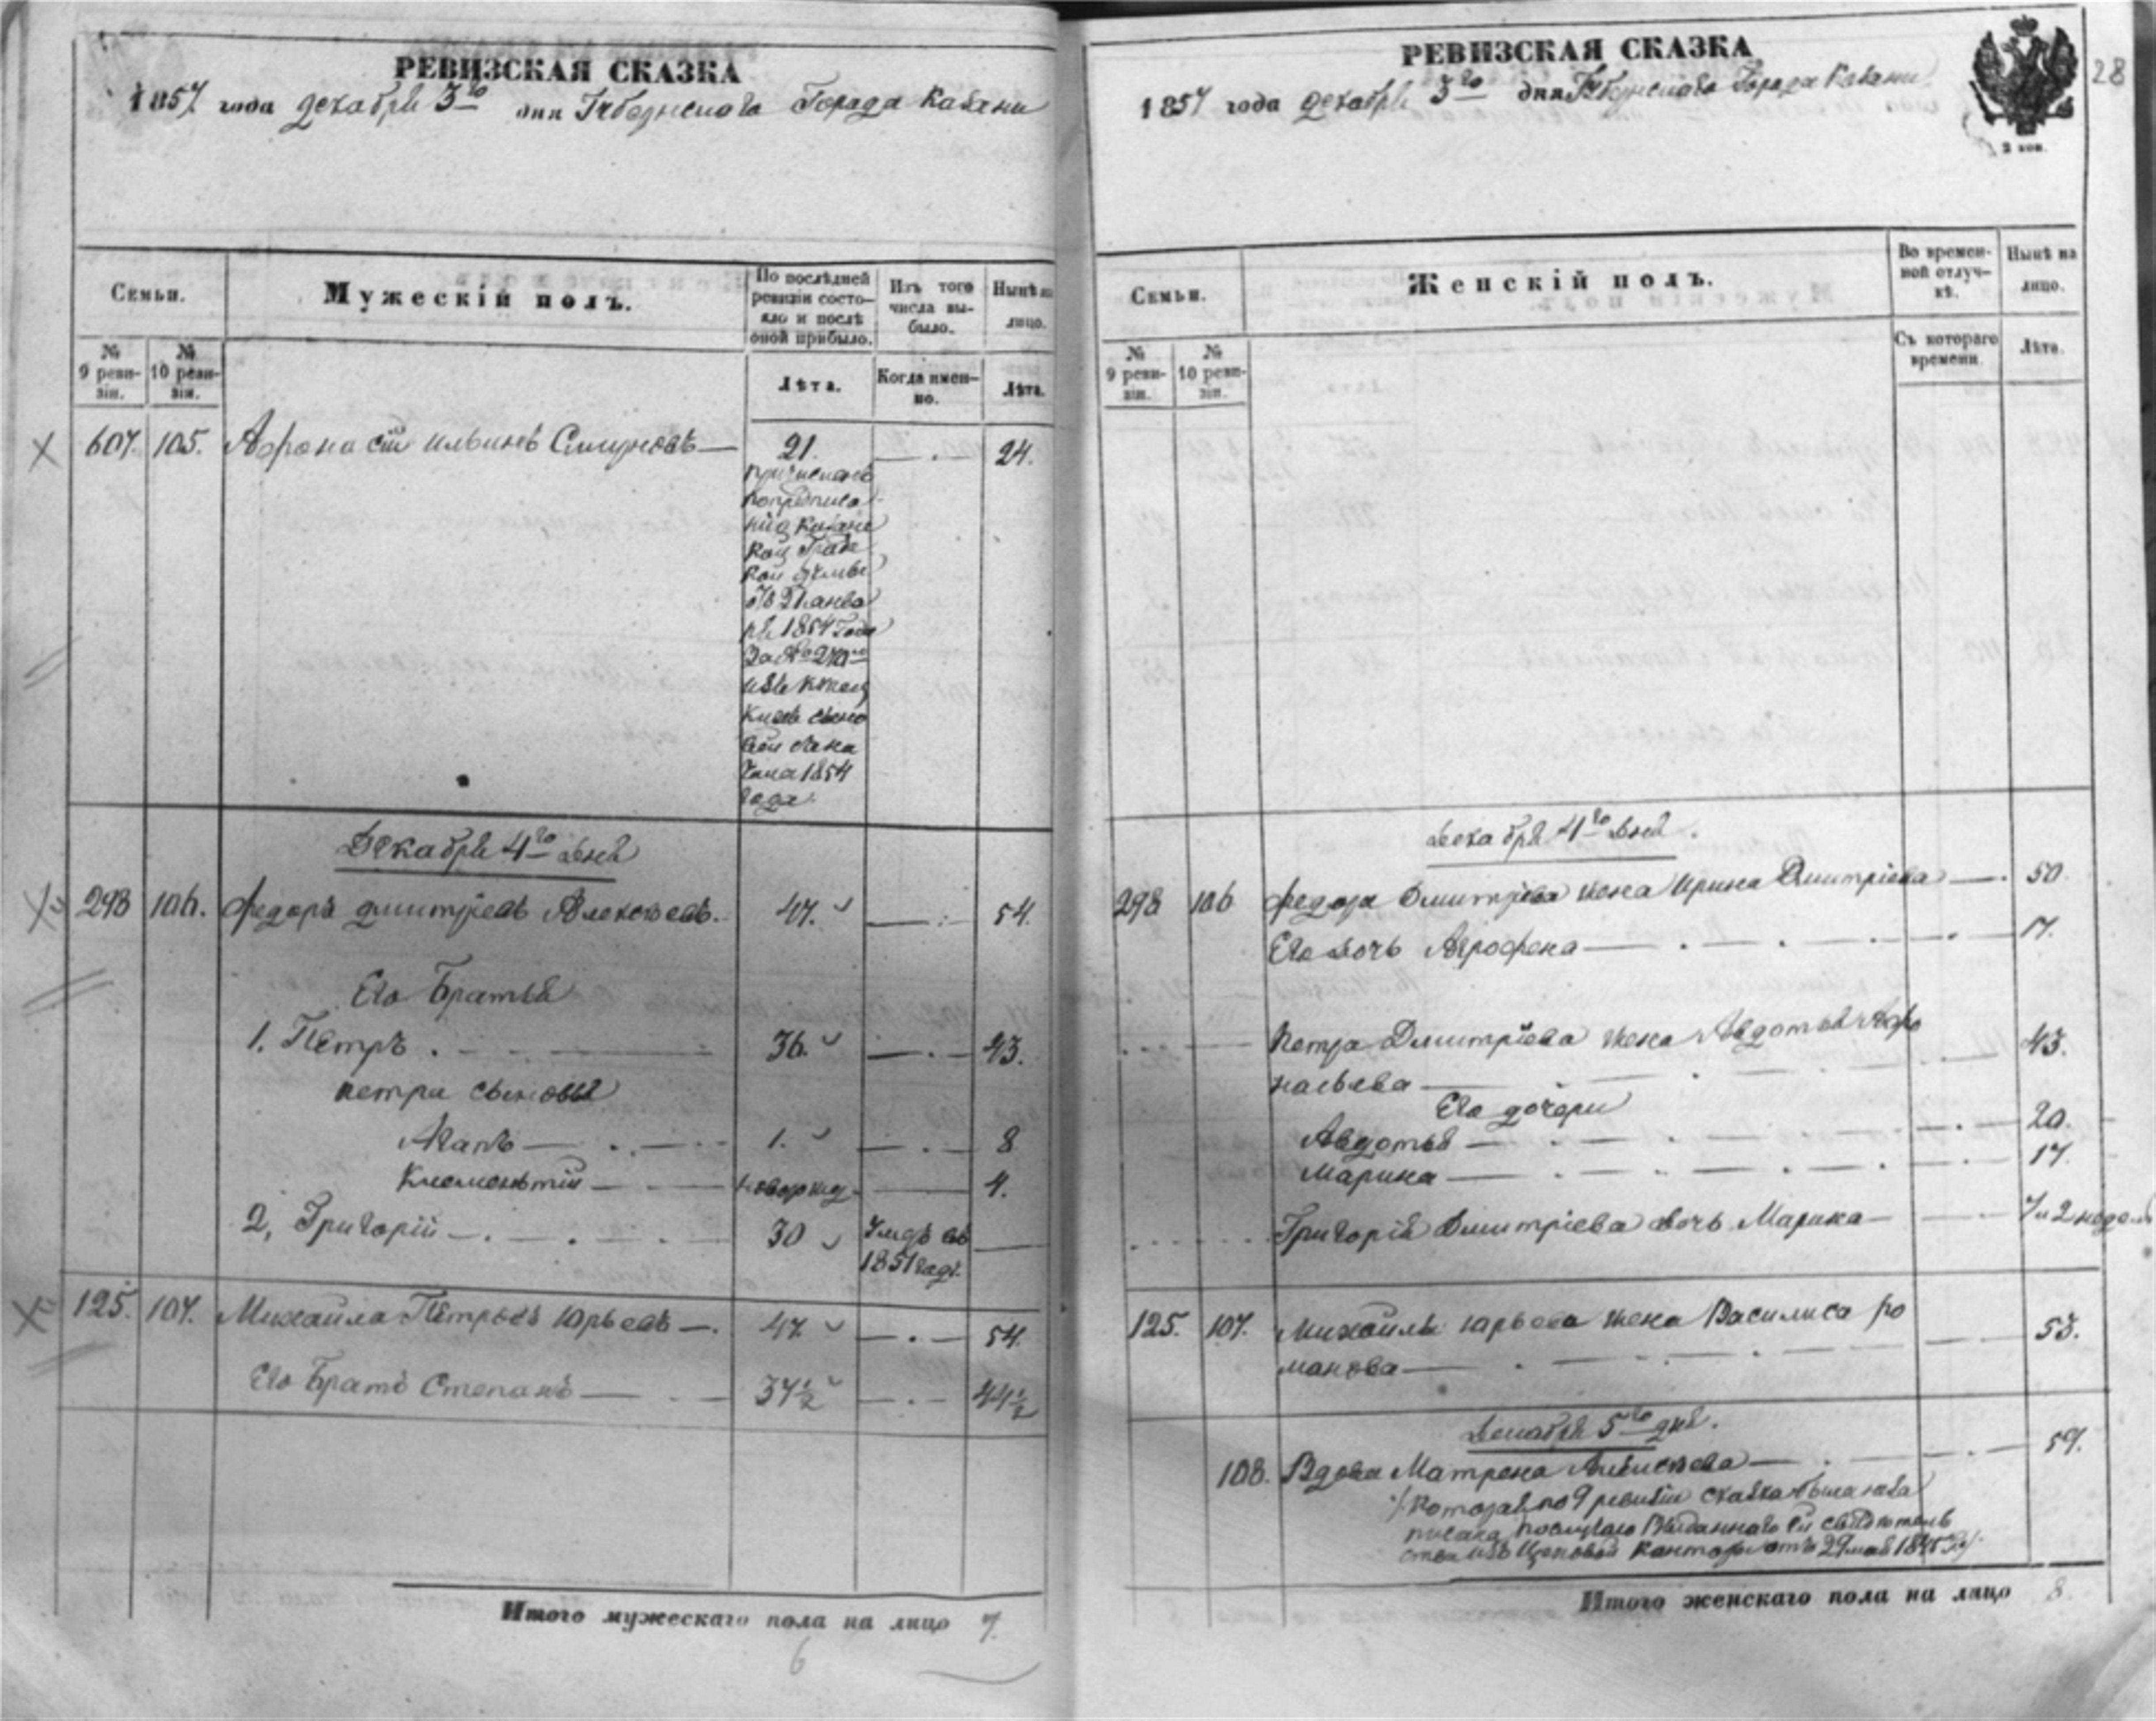 РЕВИЗСКАЯ СКАЗКА
1857 года декабря 3го дня Губернскаго Города Казани
Семьи.
Мужескій полъ.
По послѣдней ревизіи состояло и послѣ оной прибыло.
Изъ того числа выбыло.
Нынѣ на лицо.
№ 9 ревизіи.
№ 10 ревизіи.
Лѣта.
Когда именно.
Лѣта.
607. 105. Афонасій Ильинъ Смирновъ — 21. — 24.
причисленъ
по предписа
нію Казанс
кой Градс
кой думы
отъ 21 янва
ря 1854 Года
За №
изъ
1854
года.
Декабря 4го дня
298 106. Федоръ дмитріевъ Алексѣевъ. 47. — 54.
Его Братья
1. Петръ 36. — 43.
петра сыновья
Агапъ 1. — 8
Клементій новорожд. — 4.
2, Григорій 30 Умръ въ —
1851 годѣ.
125. 107. Михайла Петровъ Юрьевъ — 47. — 54.
Его Братъ Степанъ — 37½ — 44½
Итого мужескаго пола на лицо 7.
6
РЕВИЗСКАЯ СКАЗКА
28
1857 года декабря 3го дня Губернскаго Города Казани
Семьи.
Женскій полъ.
Во временной отлучкѣ.
Нынѣ на лицо.
№ 9 ревизіи.
№ 10 ревизіи.
Съ котораго времени.
Лѣта.
Декабря 4го дня.
298 106 Федора Дмитріева жена Ирина Дмитріева — 50.
Его дочь Агрофена — 17.
Петра Дмитріева жена Авдотья Афо
насьева — 43.
Его дочери
Авдотья — 20.
Марина — 17.
Григорія Дмитріева дочь Марика — 7 и 2 недели
125. 107. Михайлы Юрьева жена Василиса Ро
манова — 53.
Декабря 5го дня.
108. Вдова Матрена — 59.
Которая по 9 ревизіи
писана по случаю Выданнаго ей свидѣтель
ства изъ конторы отъ 29 мая 1845
Итого женскаго пола на лицо 8.